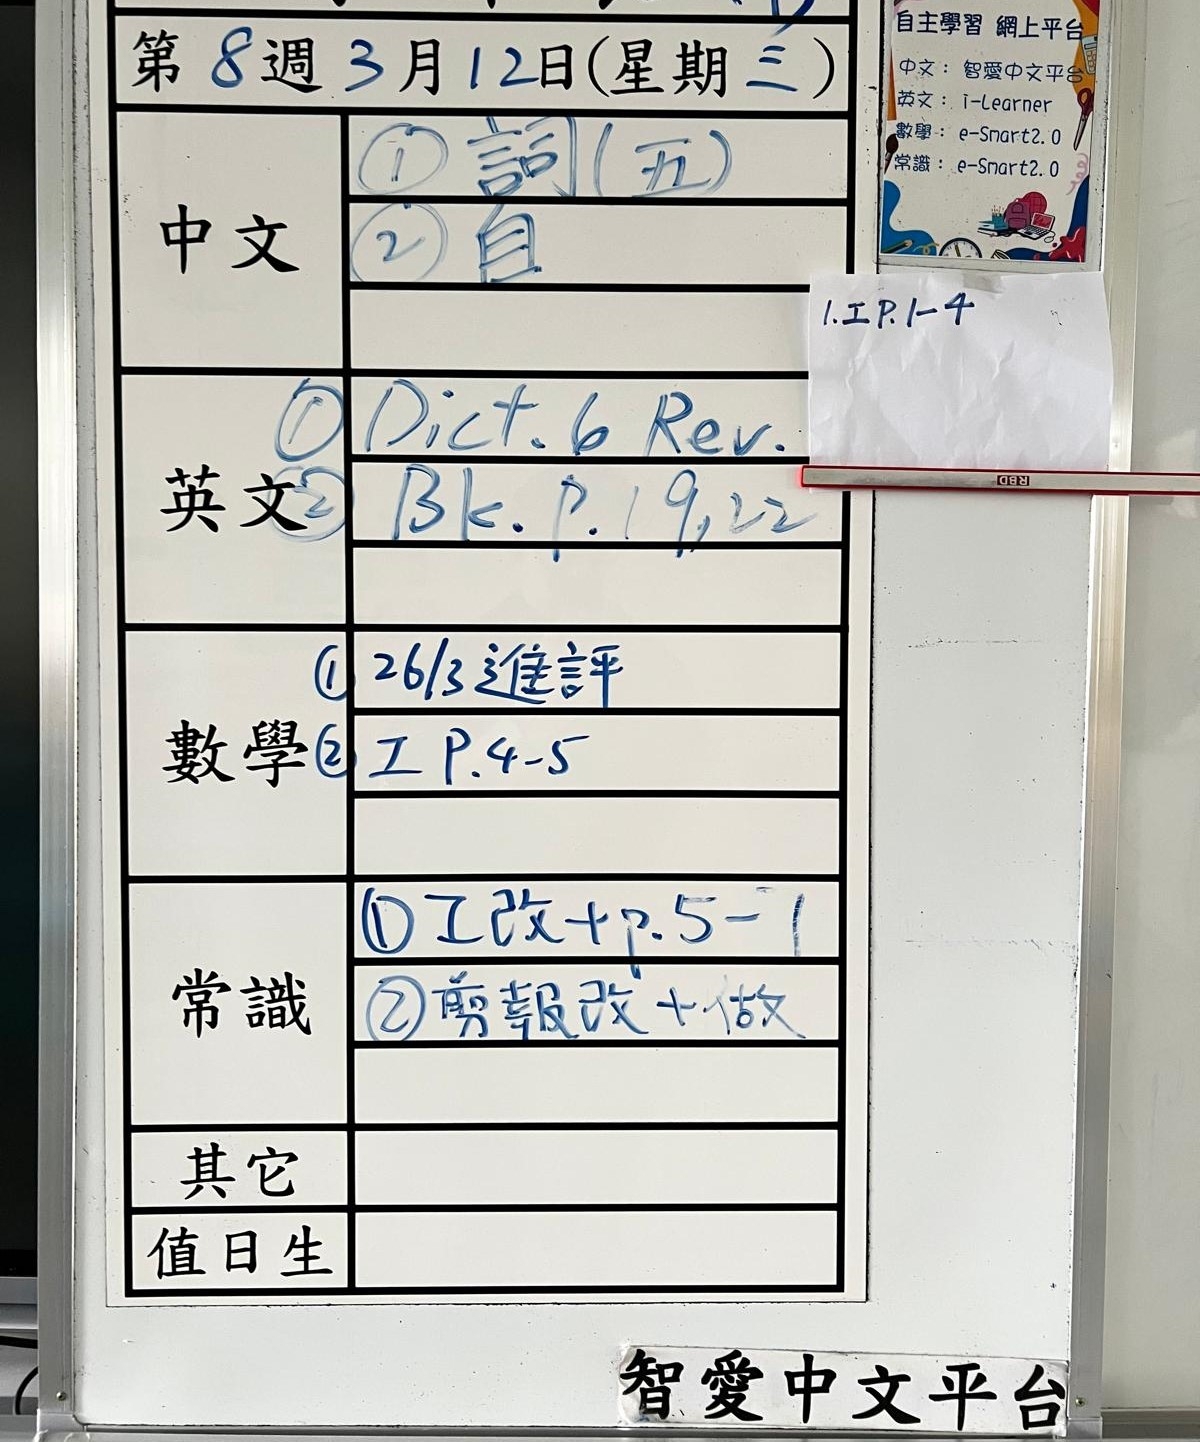 第8週3月12日(星期三)
中文
① 詞(五)
② 自
英文
① Dict. 6 Rev.
② Bk. P. 19,22
數學
① 26/3進評
② 工 P.4-5
常識
①工改+p.5-7
②剪報改+做
其它
值日生
自主學習 網上平台
中文：智愛中文平台
英文：i-Learner
數學：e-Smart2.0
常識：e-Smart2.0
1.工P.1-4
RBD
智愛中文平台